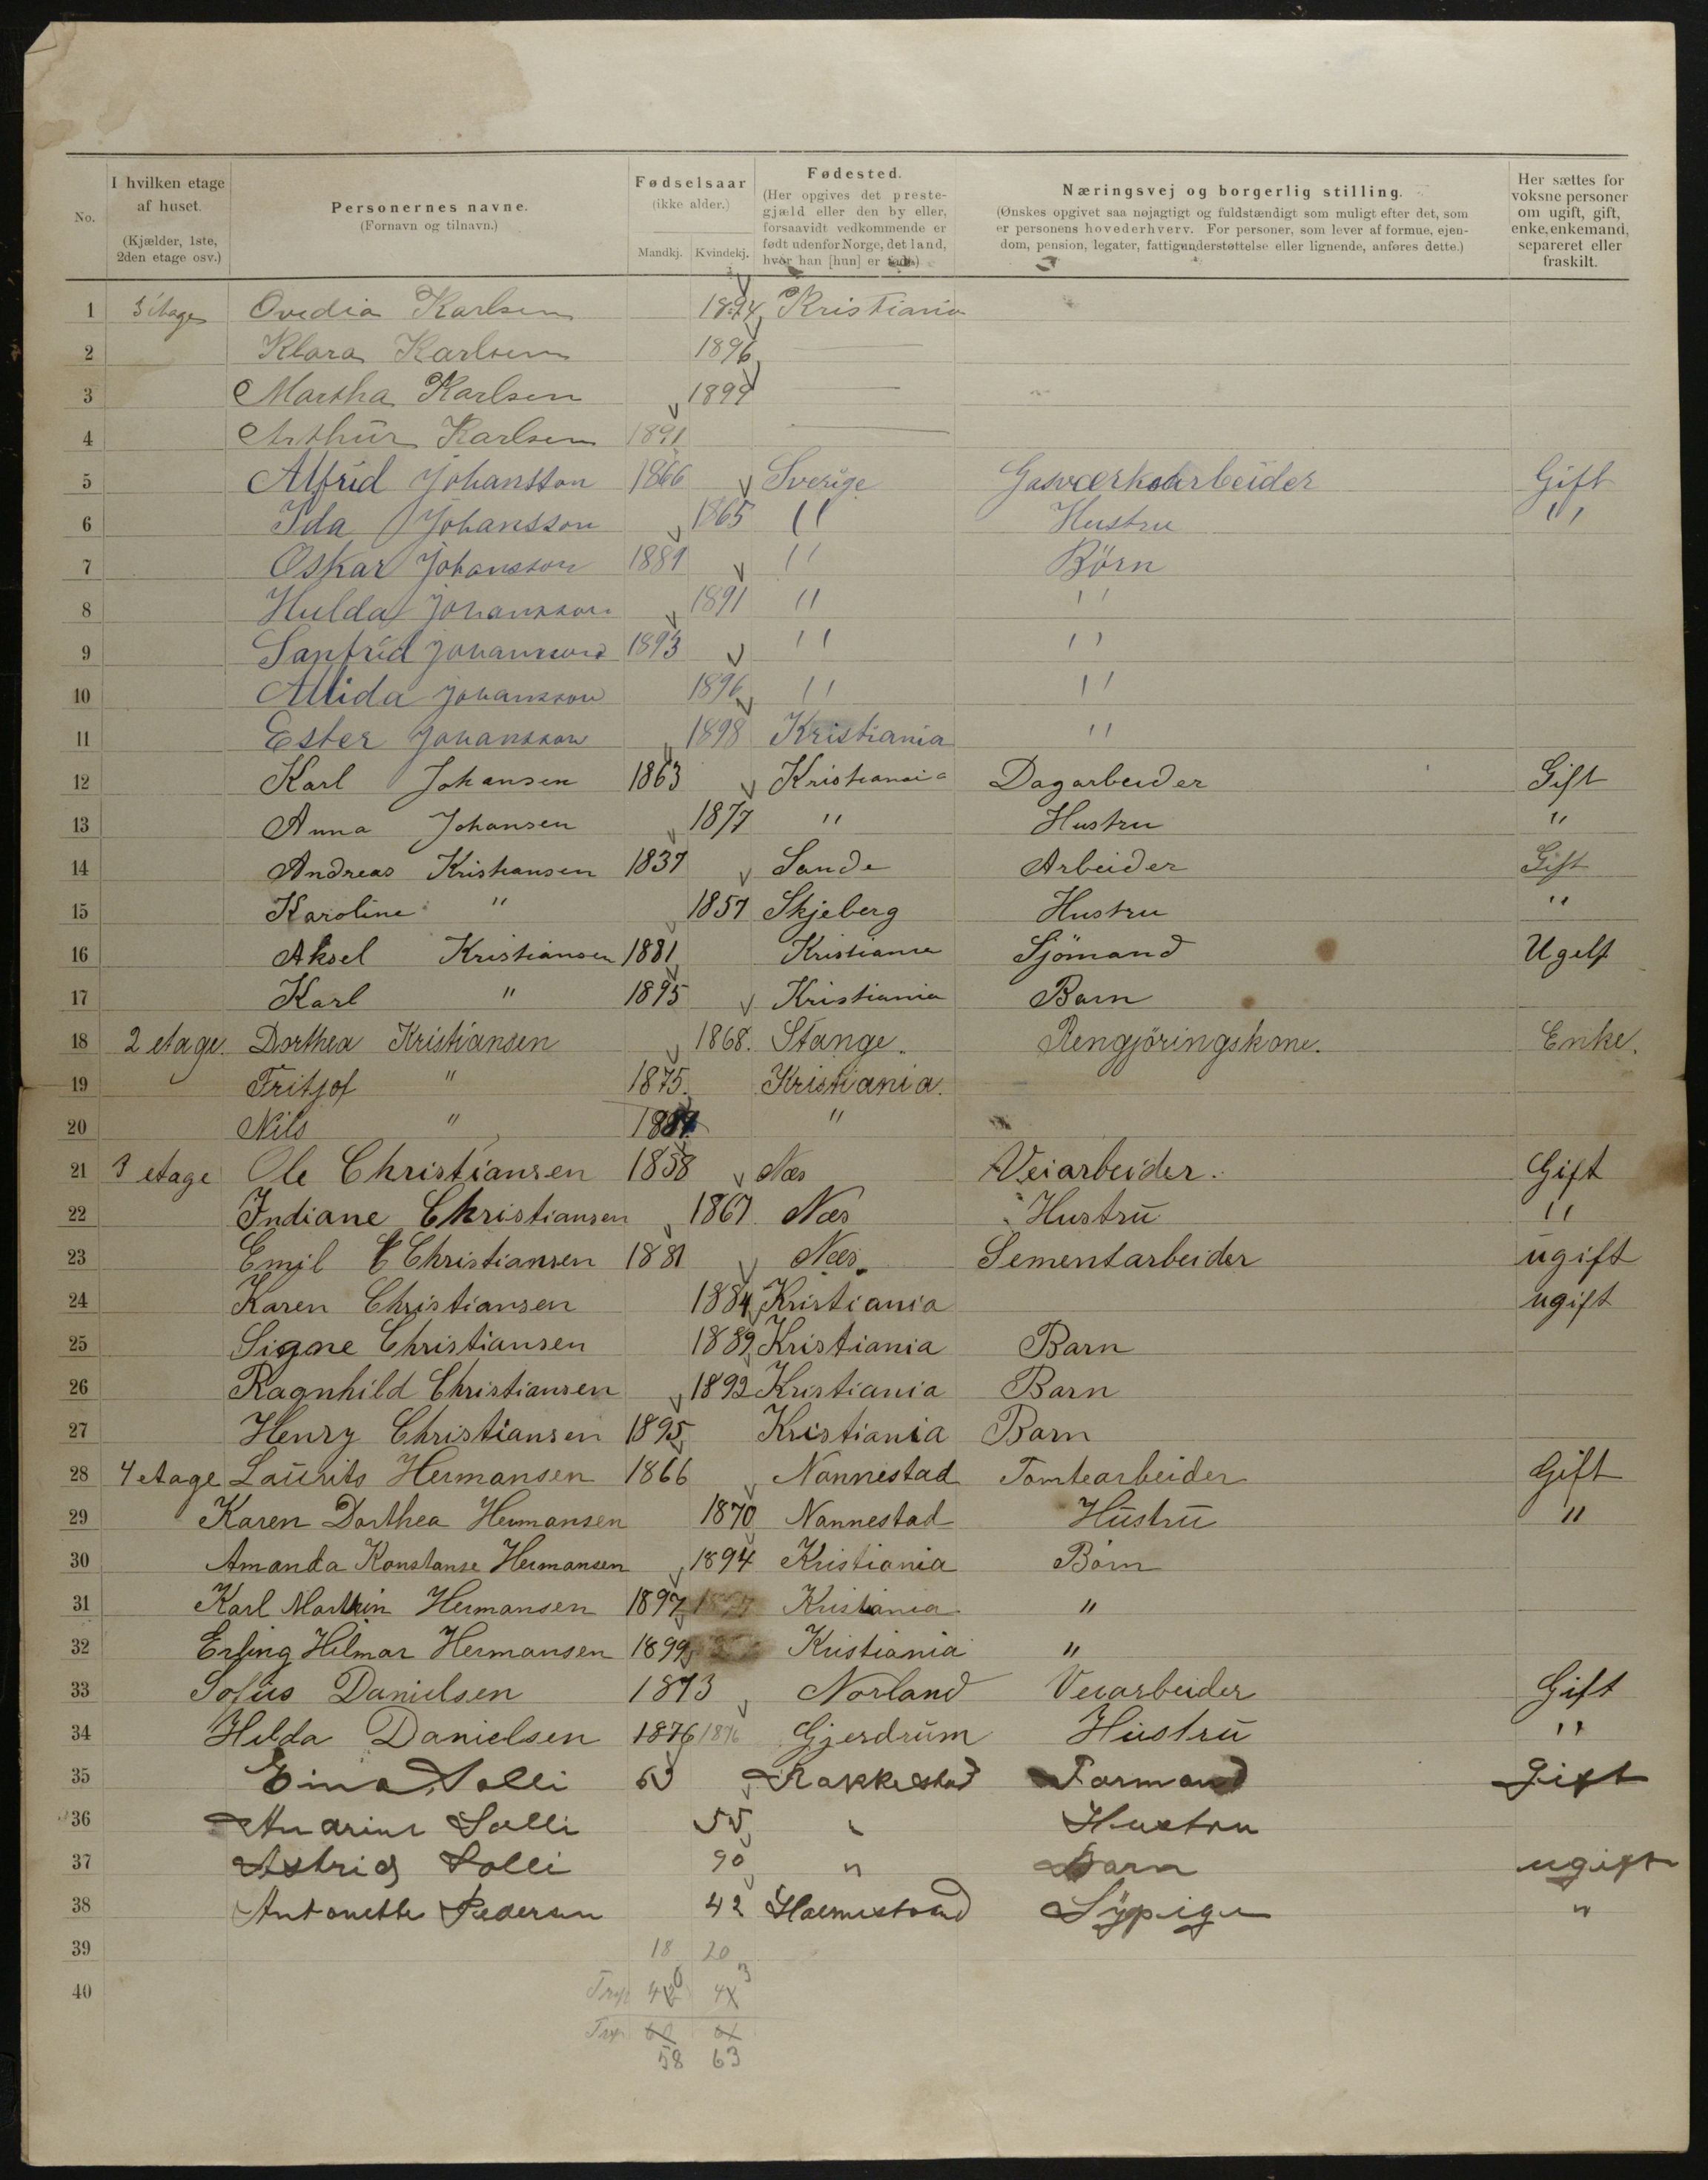 No. I hvilken etage af huset. (Kjælder, 1ste, 2den etage osv.) Personernes navne. (Fornavn og tilnavn.) Fødselsaar (ikke alder.) Mandkj. Kvindekj. Fødested. (Her opgives det prestegjæld eller den by eller, forsaavidt vedkommende er født udenfor Norge, det land, hvor han [hun] er født.) Næringsvej og borgerlig stilling. (Ønskes opgivet saa nøjagtigt og fuldstændigt som muligt efter det, som er personens hovederhverv. For personer, som lever af formue, ejendom, pension, legater, fattigunderstøttelse eller lignende, anføres dette.) Her sættes for voksne personer om ugift, gift, enke, enkemand, separeret eller fraskilt.
1 3 etage Ovedia Karlsen 1894 Kristiania
2 Klara Karlsen 1896 —
3 Martha Karlsen 1899 —
4 Arthur Karlsen 1891 —
5 Alfrid Johansson 1866 Sverige Gasværksarbeider Gift
6 Ida Johansson 1865 " Hustru "
7 Oskar Johansson 1889 " Börn
8 Hulda Johansson 1891 " "
9 Sanfrid Johansson 1893 " "
10 Alida Johansson 1896 " "
11 Ester Johansson 1898 Kristiania "
12 Karl Johansen 1863 Kristiania Dagarbeider Gift
13 Anna Johansen 1877 " Hustru "
14 Andreas Kristiansen 1837 Sande Arbeider Gift
15 Karoline " 1857 Skjeberg Hustru "
16 Aksel Kristiansen 1881 Kristiania Sjömand Ugift
17 Karl " 1895 Kristiania Barn
18 2 etage. Dorthea Kristiansen 1868. Stange. Rengjöringskone. Enke.
19 Fritjof " 1875. Kristiania.
20 Nils " "
21 3 etage Ole Christiansen 1858 Næs Veiarbeider. Gift
22 Indiane Christiansen 1867 Næs Hustru "
23 Emil Christiansen 1881 Næs. Sementarbeider ugift
24 Karen Christiansen 1884 Kristiania ugift
25 Signe Christiansen 1889 Kristiania Barn
26 Ragnhild Christiansen 1892 Kristiania Barn
27 Henry Christiansen 1895 Kristiania Barn
28 4 etage Laurits Hermansen 1866 Nannestad Tomtearbeider Gift
29 Karen Dorthea Hermansen 1870 Nannestad Hustru "
30 Amanda Konstanse Hermansen 1894 Kristiania Börn
31 Karl Martin Hermansen 1897 Kristiania "
32 Erling Hilmar Hermansen 1899 Kristiania "
33 Sofus Danielsen 1873 Norland Veiarbeider Gift
34 Hilda Danielsen 1876 1876 Gjerdrum Hustru "
35 Solli 63 Rakkestad Formand Gift
36 Solli 55 " Hustru
37 Astrid Solli 90 " Barn ugift
38 Antonette Pedersen 42 Holmestrand Sypige "
39 18 20
40
58 63